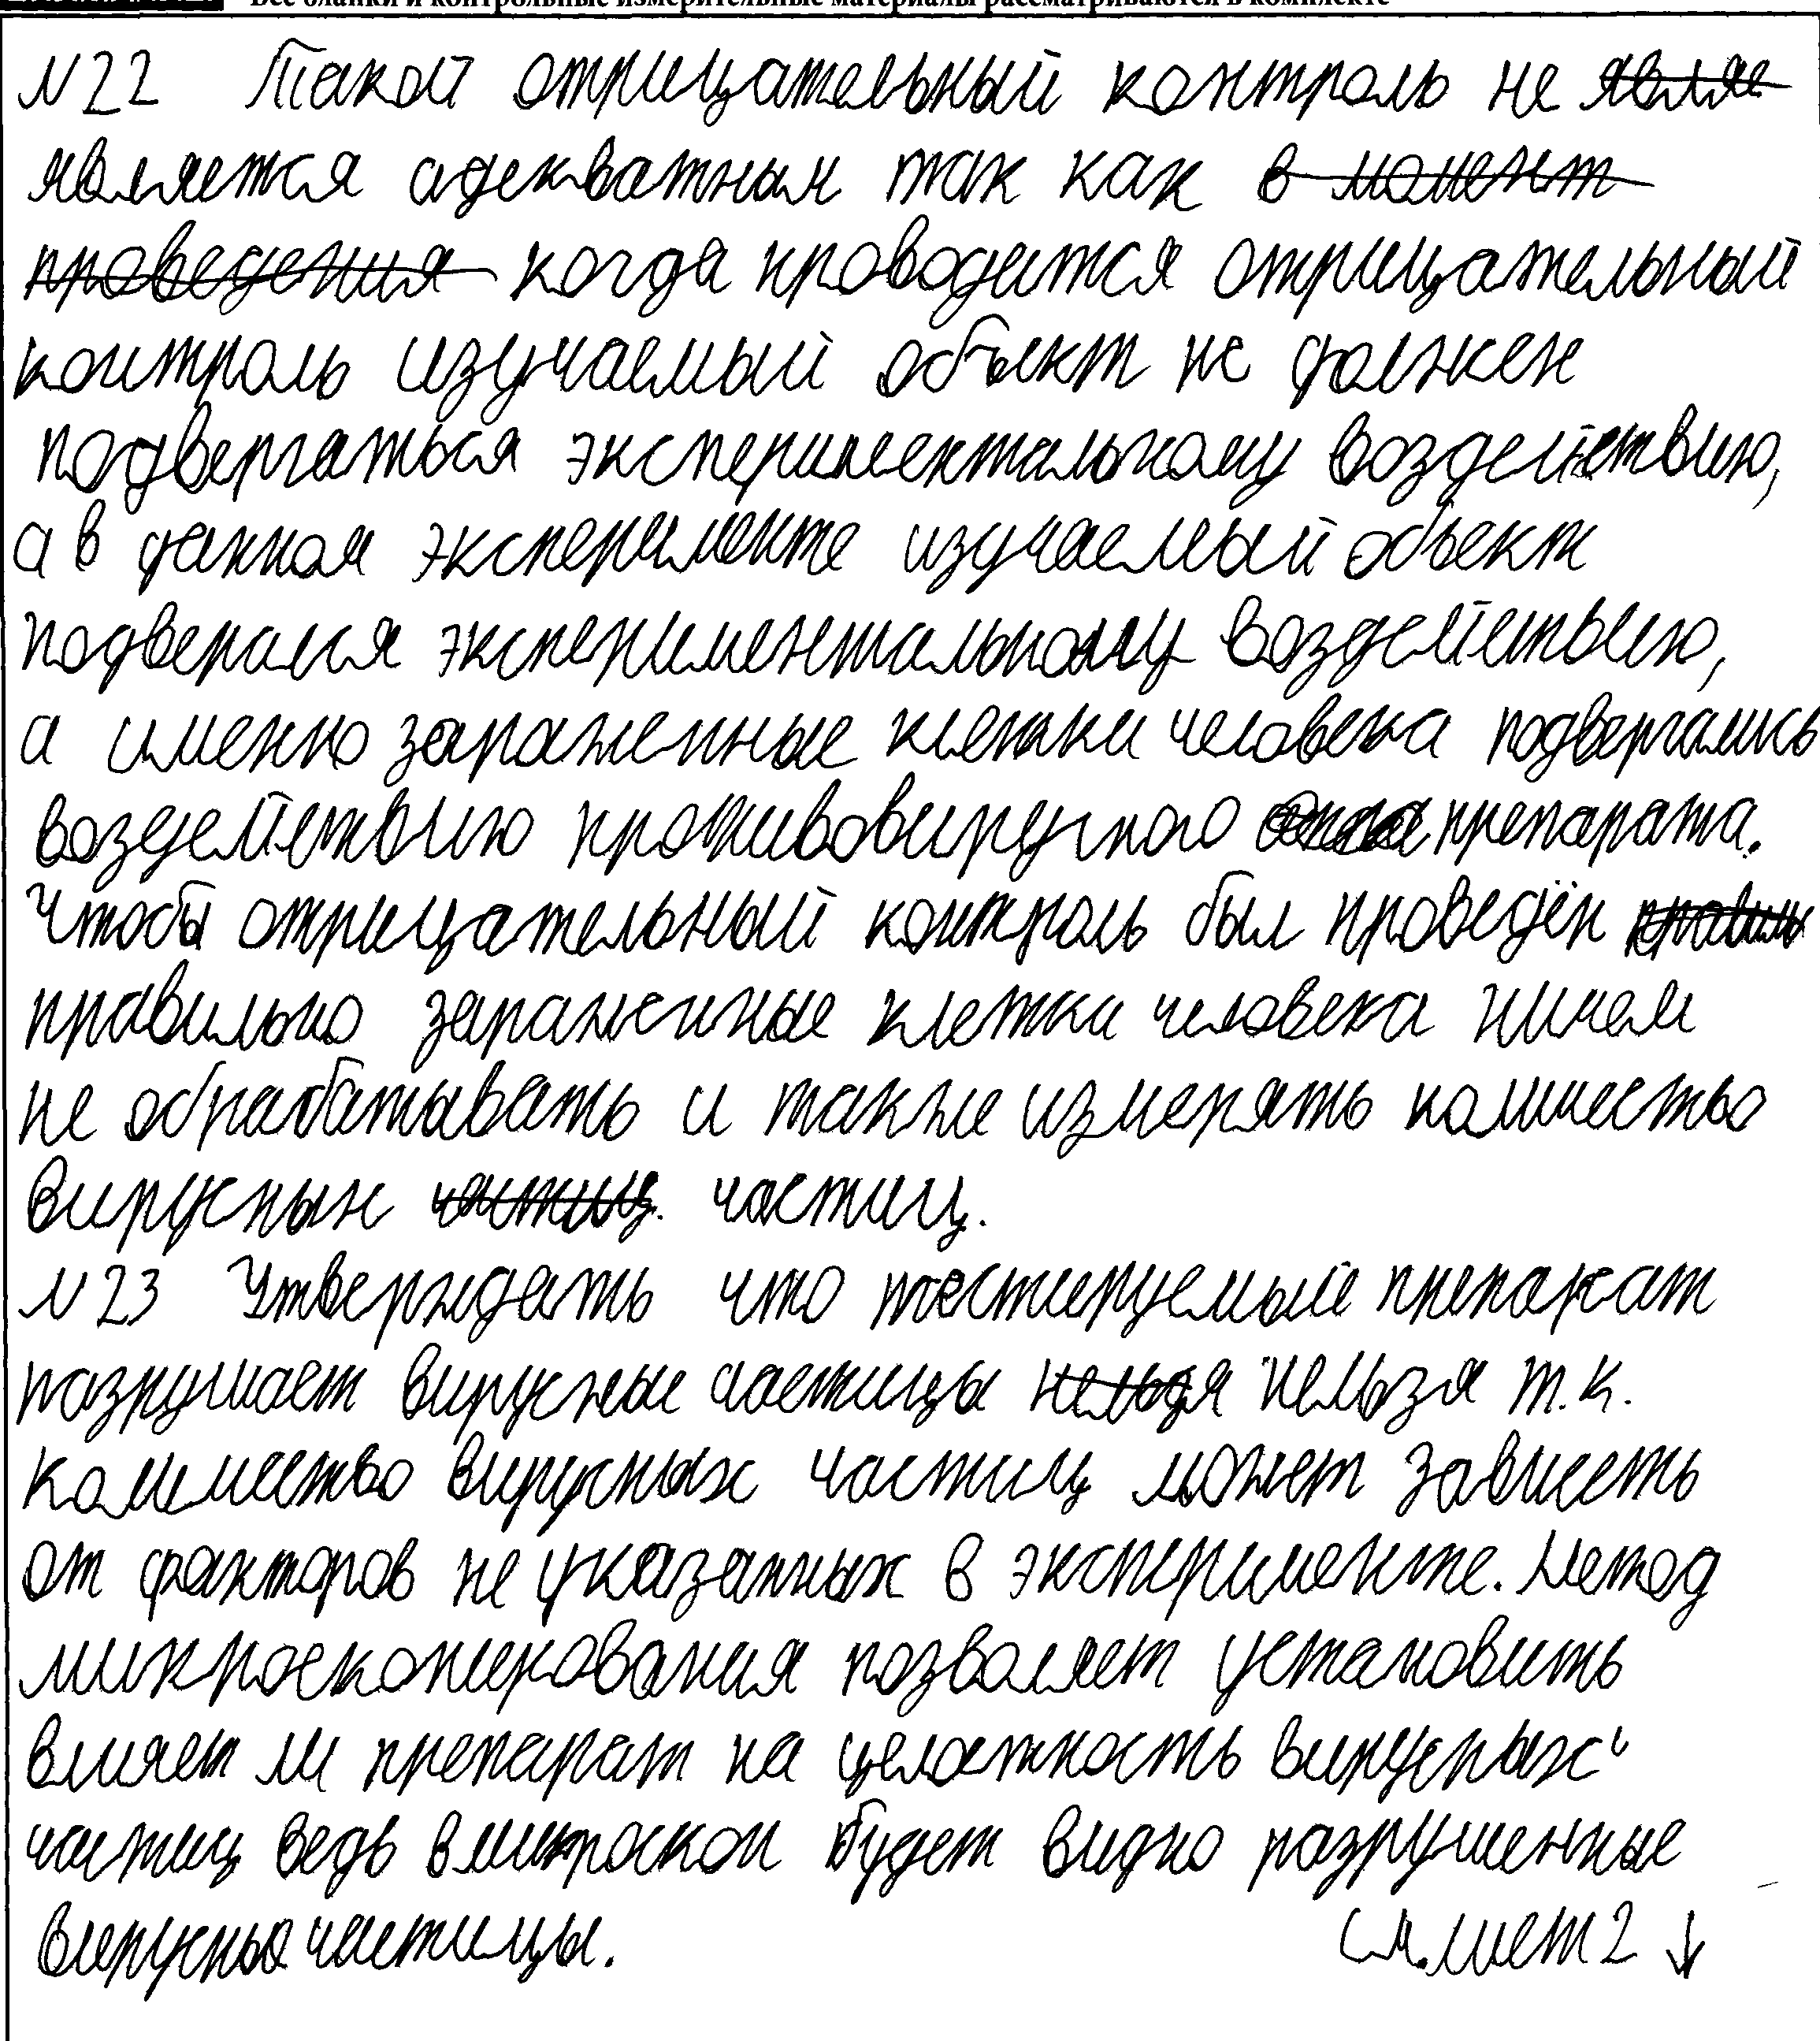 Все бланки и контрольные измерительные материалы рассматриваются в комплекте
N22 Такой отрицательный контроль не явля
является адекватным так как в момент
проведения когда проводится отрицательный
контроль изучаемый объект не должен
подвергаться экспериментальному воздействию,
а в данном эксперименте изучаемый объект
подвергался экспериментальному воздействию,
а именно зараженные клетки человека подвергались
воздействию противовирусного препарата.
Чтобы отрицательный контроль был проведён правиль
правильно зараженные клетки человека ничем
не обрабатывать и также измерять количество
вирусных частиц. частиц.
N23 Утверждать что тестируемый препарат
разрушает вирусные частицы нельзя нельзя т.к.
количество вирусных частиц может зависеть
от факторов не указанных в эксперименте. Метод
микроскопирования позволяет установить
влияет ли препарат на целостность вирусных
частиц ведь в микроскоп будет видно разрушенные
вирусные частицы. См. лист 2 ↓